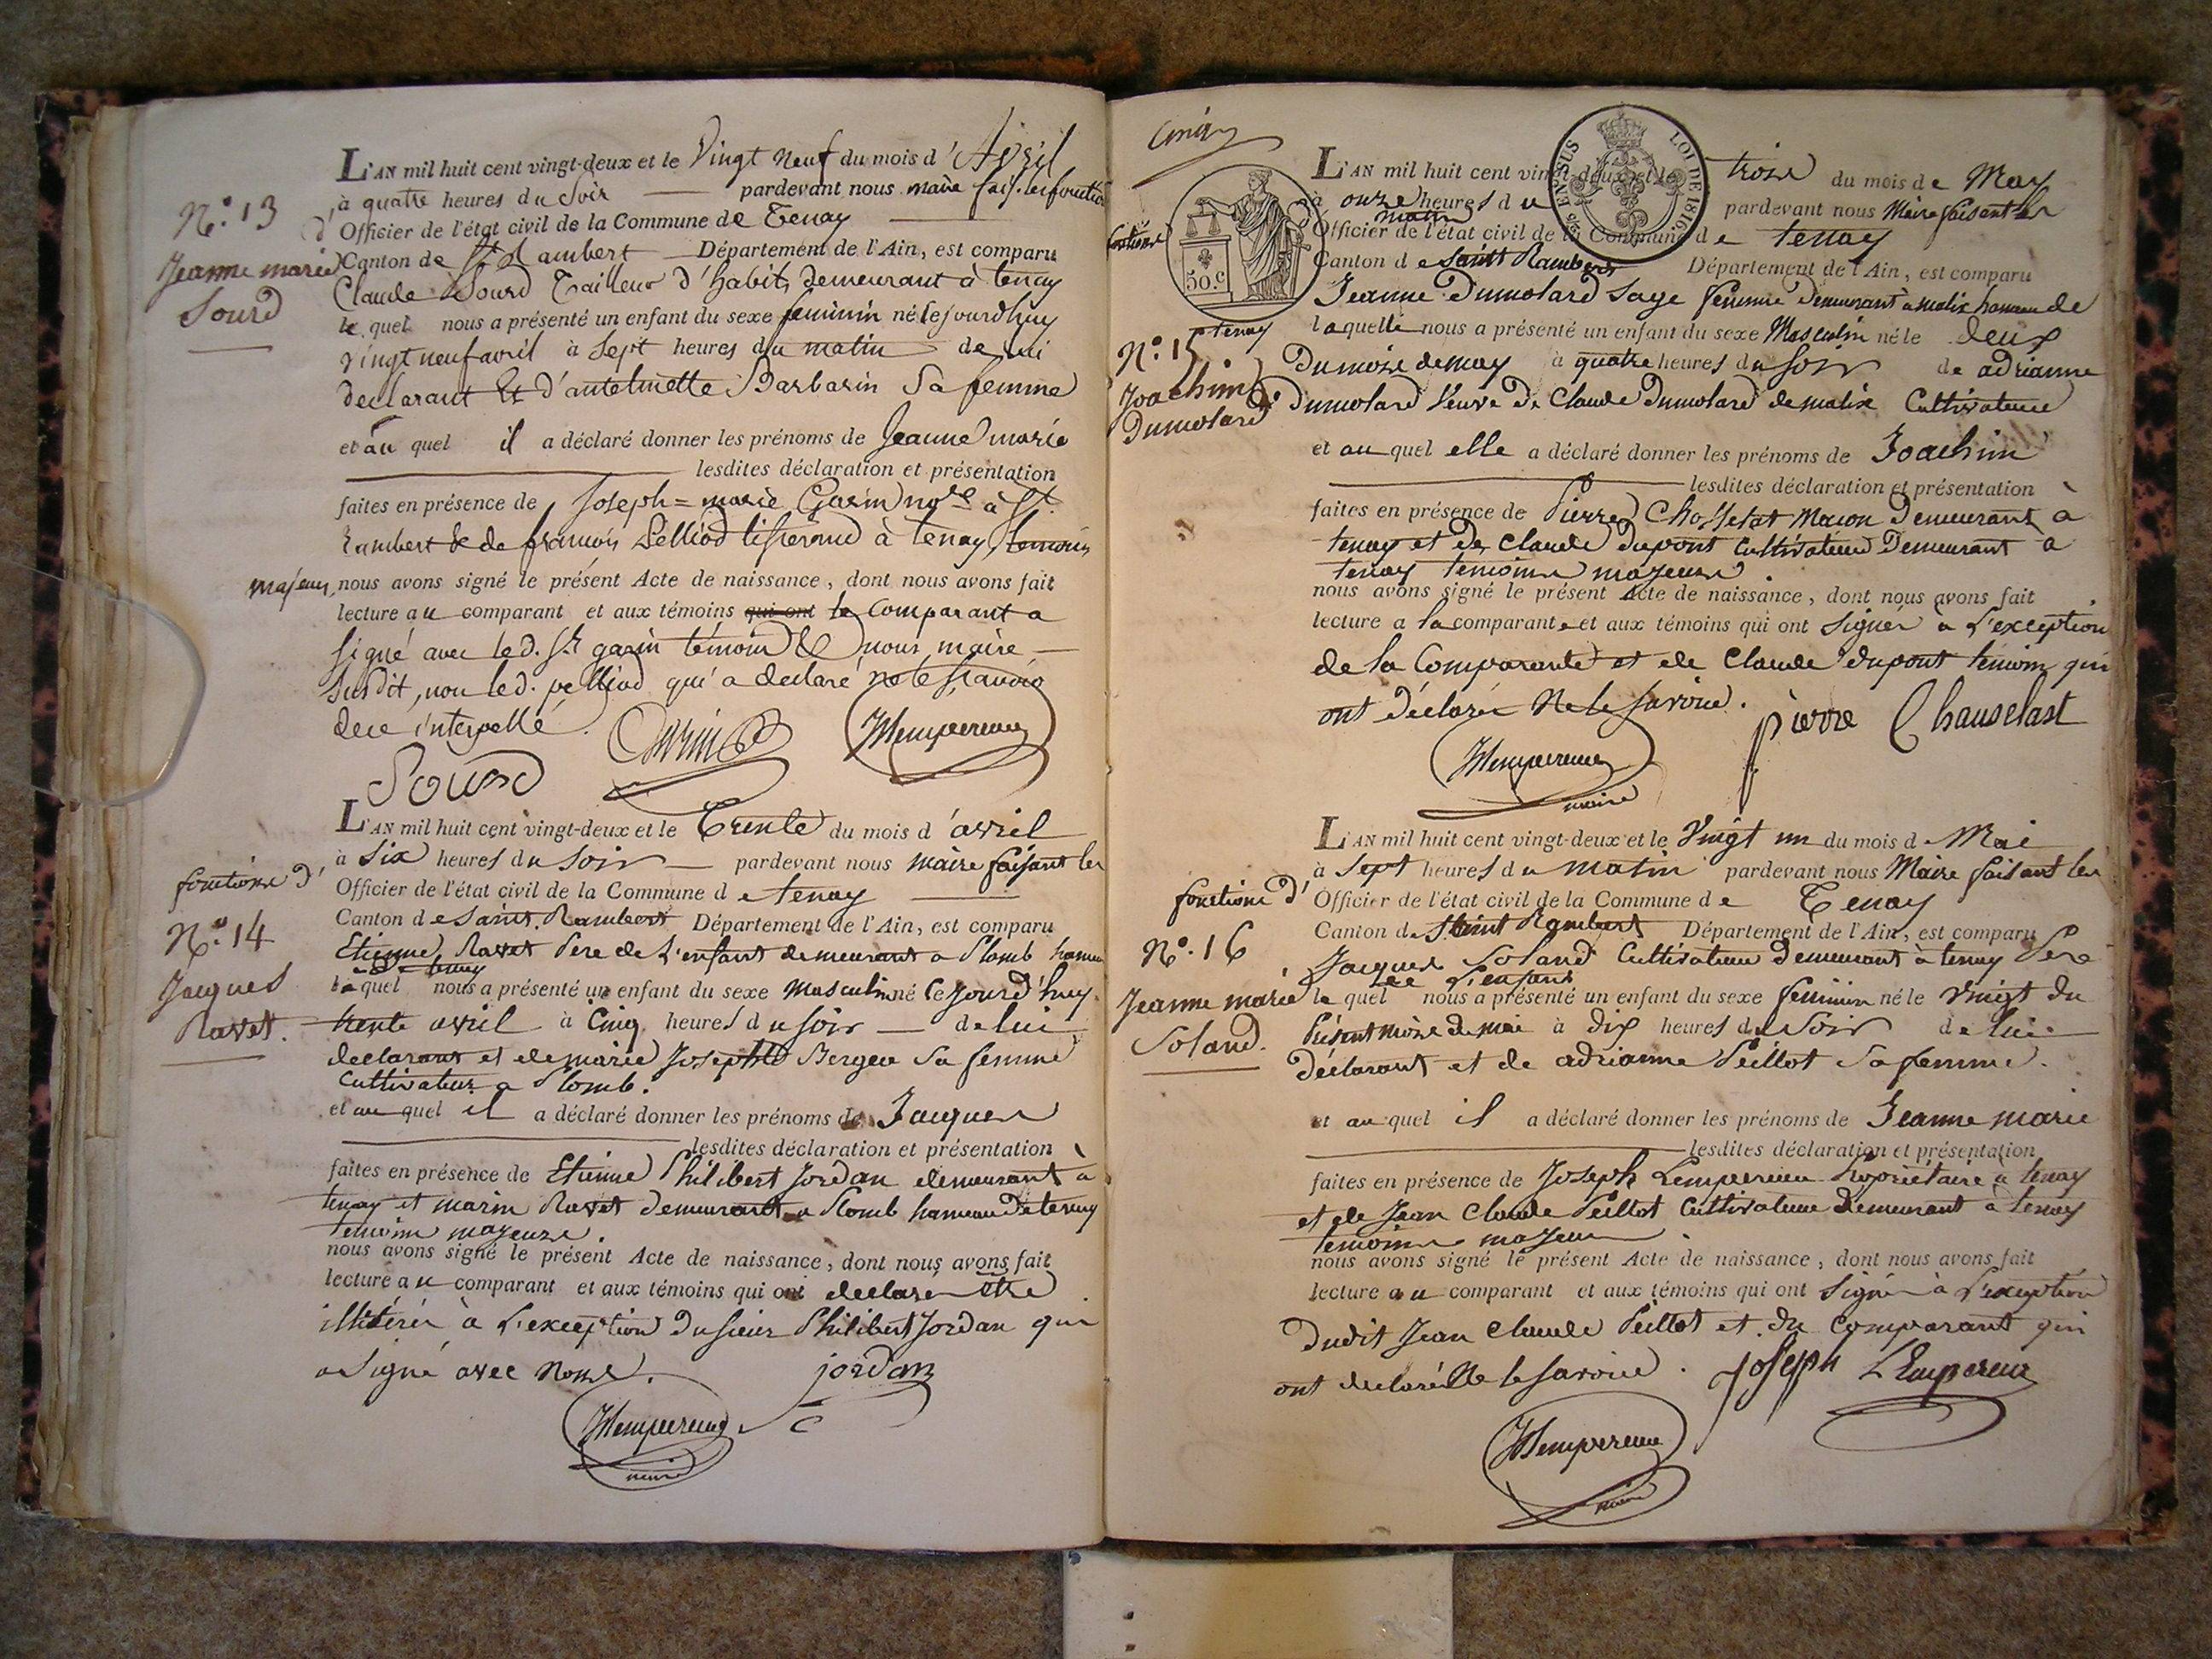 L'AN mil huit cent vingt-deux et le Vingt neuf du mois d'Avril
à quatre heures du Soir pardevant nous maire fais. les fonction
d' Officier de l'état civil de la Commune de Tenay
N.° 13
Jeanne marie
Sourd
Canton de St Rambert Département de l'Ain, est comparu
Claude Sourd Tailleur d'habits demeurant à tenay
le quel nous a présenté un enfant du sexe feminin né le jourdhuy
vingt neuf avril à Sept heures du matin de lui
declarant Et d'antelmette Barbarin Sa femme
et au quel il a déclaré donner les prénoms de Jeanne marie
lesdites déclaration et présentation
faites en présence de Joseph=marie Garin nore à St
Rambert & de francois Pelliod tisserand à tenay temoins
majeurs, nous avons signé le présent Acte de naissance, dont nous avons fait
lecture au comparant et aux témoins qui ont le Comparant a
signé avec led. Sr garin témoin & nous maire
Susdit, non led. pelliod qui a declaré ne le Savoir
de ce interpellé.
Sourd
Garin
JLempereur
L'AN mil huit cent vingt-deux et le Trente du mois d'avril
à Six heures du Soir pardevant nous maire faisant les
fonctions d' Officier de l'état civil de la Commune de tenay
N.° 14
Jacques
Ravet.
Canton de Saint Rambert Département de l'Ain, est comparu
Etienne Ravet Pere de L'enfant demeurant a Plomb hameau
de tenay
le quel nous a présenté un enfant du sexe Masculin né Cejourd'huy
trente avril à Cinq heures du soir de lui
declarant et de marie Josephte Berger Sa femme
Cultivateur a Plomb.
et au quel il a déclaré donner les prénoms de Jacques
lesdites déclaration et présentation
faites en présence de Etienne Philibert Jordan demeurant à
tenay et marin Ravet demeurant a Plomb hameau de tenay
temoins majeurs.
nous avons signé le présent Acte de naissance, dont nous avons fait
lecture au comparant et aux témoins qui ont declaré être
illitérés à L'exception du sieur Philibert Jordan qui
a Signé avec Nous.
jordan
JLempereur
maire
50.c
LOI DE 1816
L'AN mil huit cent vingt-deux et le trois du mois de May
à onze heures du matin pardevant nous Maire faisant les
fonctions Officier de l'état civil de la Commune de tenay
Canton de Saint Rambert Département de l'Ain, est comparu
Jeanne Dumolard Sage femme Demeurant à malix hameau de
tenay
N.° 15
Joachim
Dumolard
laquelle nous a présenté un enfant du sexe Masculin né le deux
Du mois de may à quatre heures du Soir de adrianne
Dumolard Veuve De Claude Dumolard de malix Cultivateur
et au quel elle a déclaré donner les prénoms de Joachim
lesdites déclaration et présentation
faites en présence de Pierre Chosselat Macon Demeurant à
tenay et de Claude dupont Cultivateur Demeurant à
tenay temoins majeurs.
nous avons signé le présent Acte de naissance, dont nous avons fait
lecture a la comparante et aux témoins qui ont Signés à L'exception
de la Comparante et de Claude dupont temoin qui
ont Déclarés Ne le savoir.
pierre Chauselast
JLempereur
maire
L'AN mil huit cent vingt-deux et le Vingt un du mois de Mai
à Sept heures du matin pardevant nous Maire faisant les
fonctions d' Officier de l'état civil de la Commune de Tenay
N.° 16
Jeanne marie
Soland.
Canton de Saint Rambert Département de l'Ain, est comparu
Jacques Soland Cultivateur Demeurant à tenay Pere
de L'enfant
le quel nous a présenté un enfant du sexe feminin né le vingt du
Présent mois de mai à dix heures du Soir de lui
Déclarant et de adrianne Peillot Sa femme.
et au quel il a déclaré donner les prénoms de Jeanne marie
lesdites déclaration et présentation
faites en présence de Joseph Lempereur Propriétaire à tenay
et de Jean Claude Peillot Cultivateur Demeurant à tenay
temoins majeurs.
nous avons signé le présent Acte de naissance, dont nous avons fait
lecture au comparant et aux témoins qui ont Signés à L'exception
Dudit Jean Claude Peillot et du Comparant qui
ont declarés Ne le savoir.
Joseph LEmpereur
JLempereur
maire